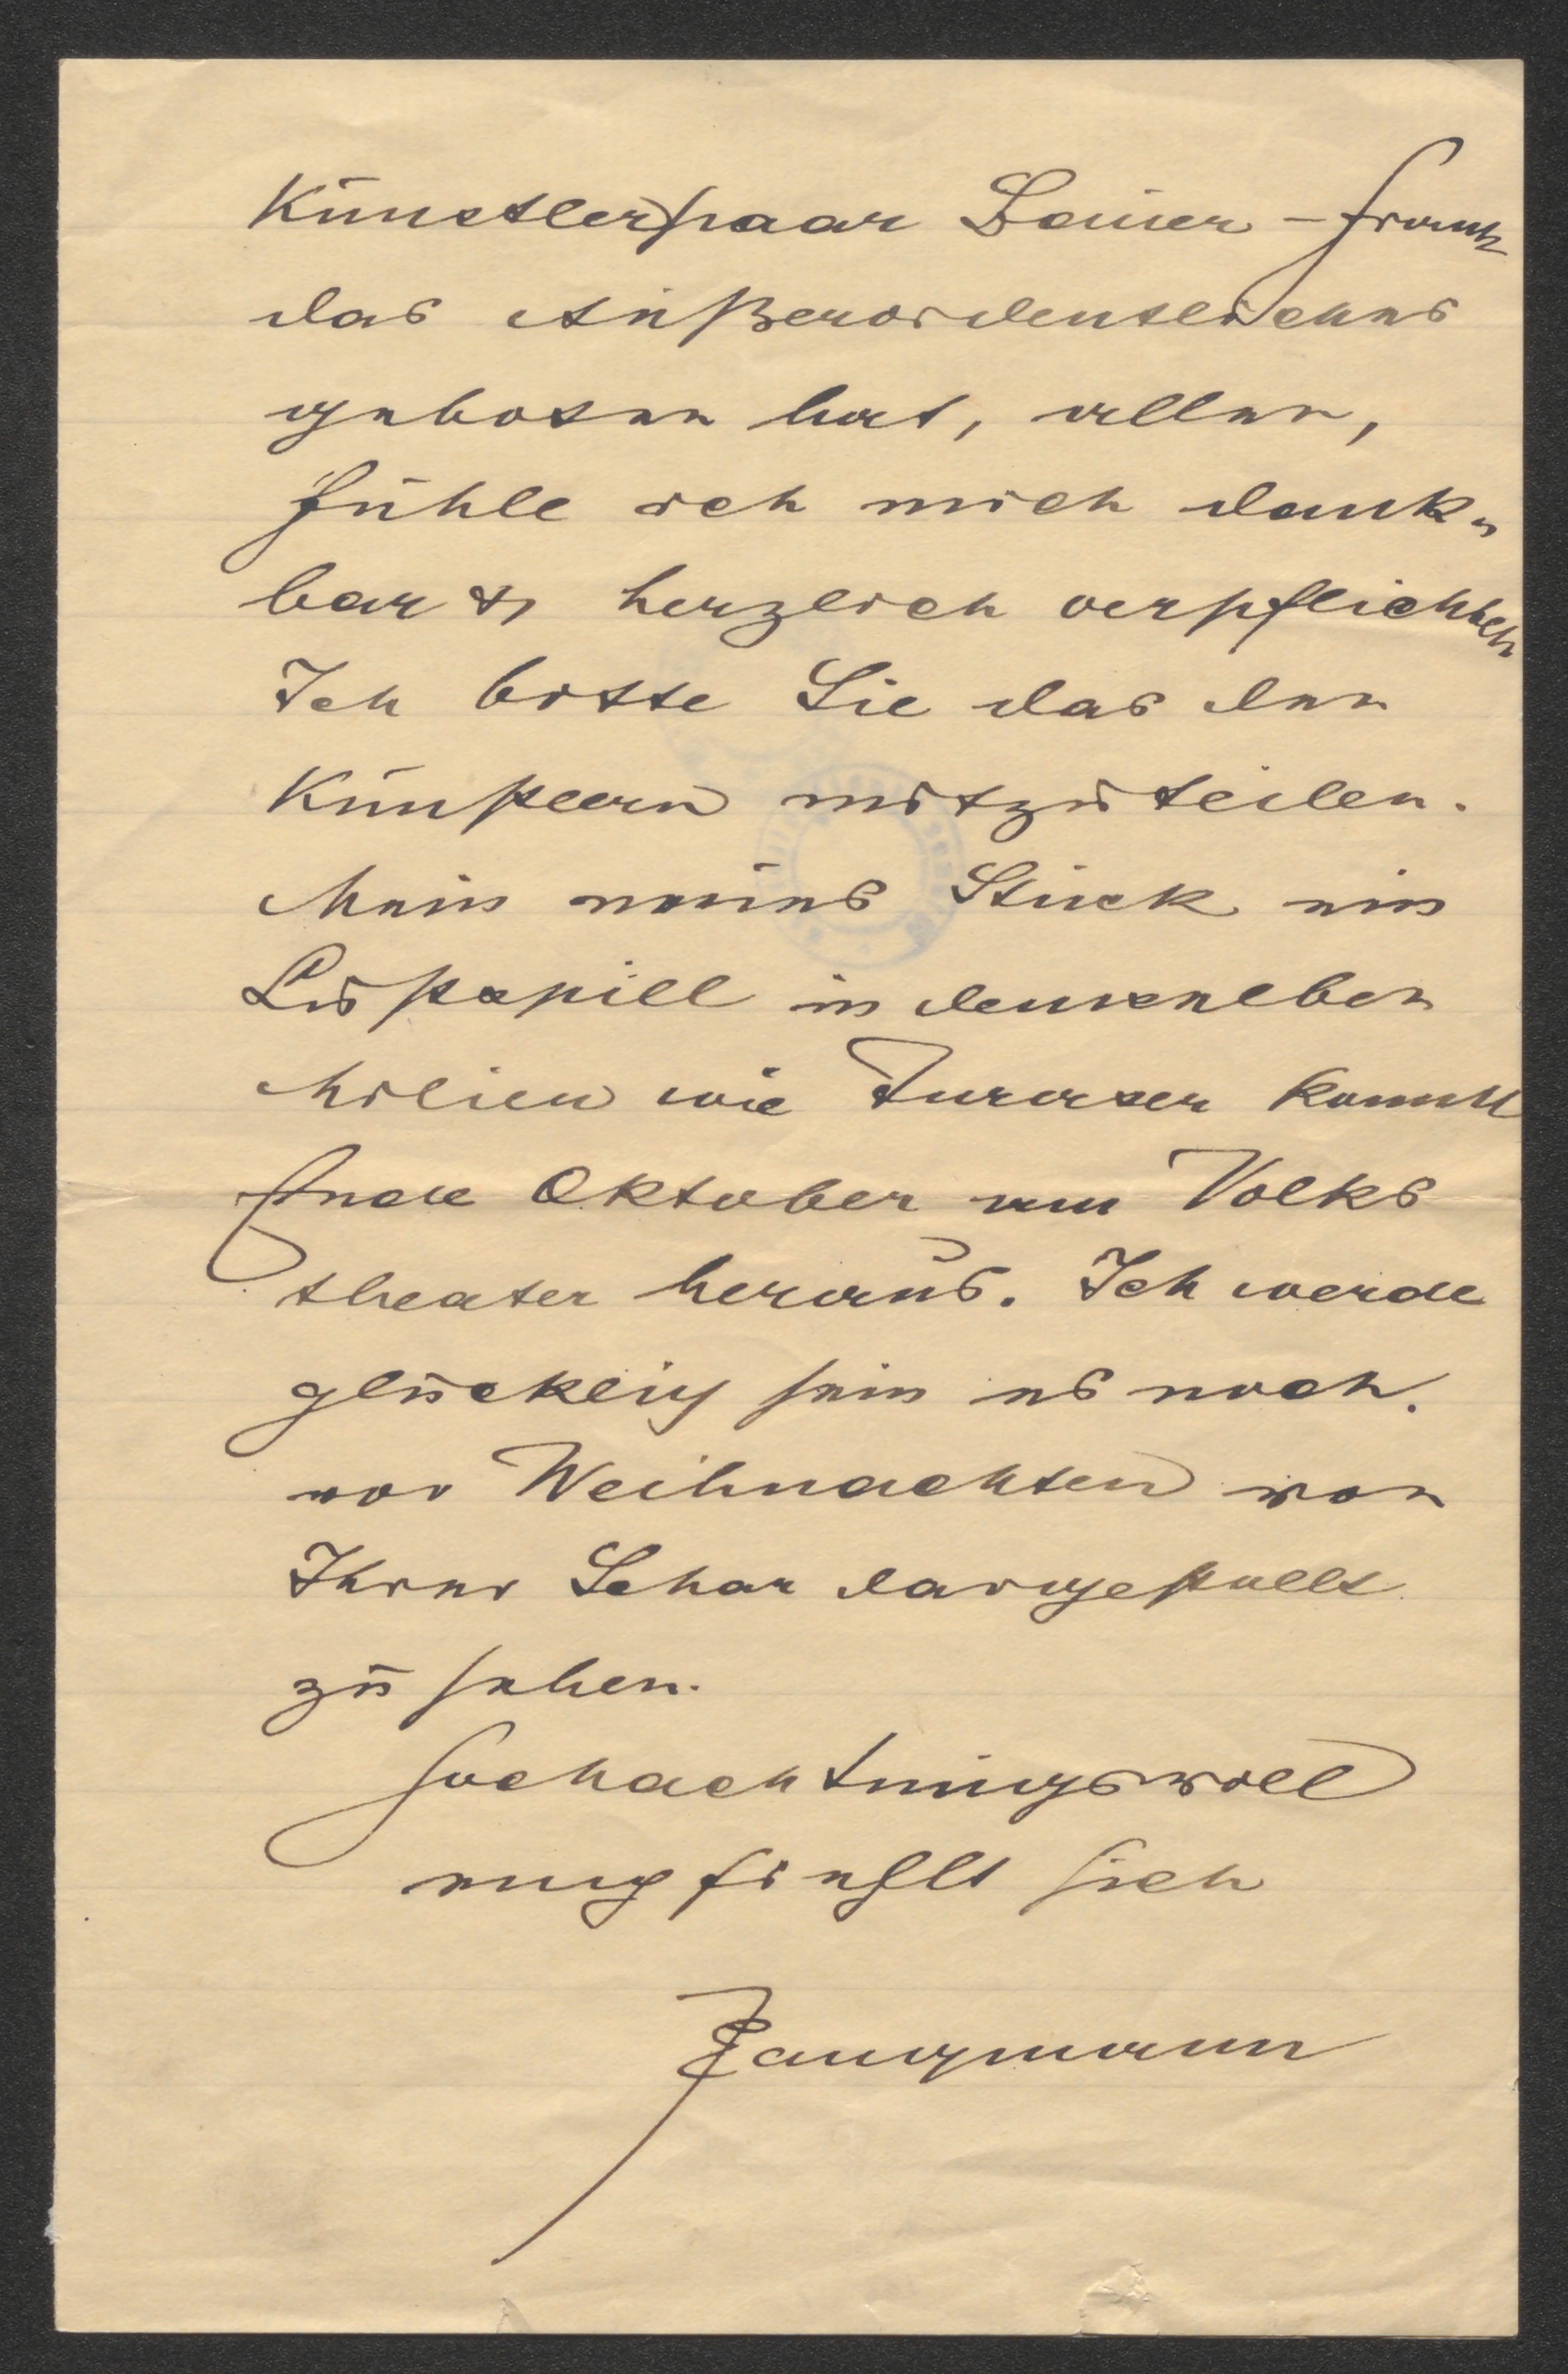 Künstlerpaar Bauer - Frank
das Außerordentliches
geboten hat, allen,
fühle ich mich dank-
bar & herzlich verpflichtet
Ich bitte Sie das den
Künstlern mitzuteilen.
Mein neues Stück ein
Lustspiel in demselben
Milieu wie Turaser kommt
Ende Oktober am Volks
theater heraus. Ich werde
glücklich sein es noch
vor Weihnachten von
Ihrer Schar dargestellt
zu sehen.
Hochachtungsvoll
empfiehlt sich
Langmann